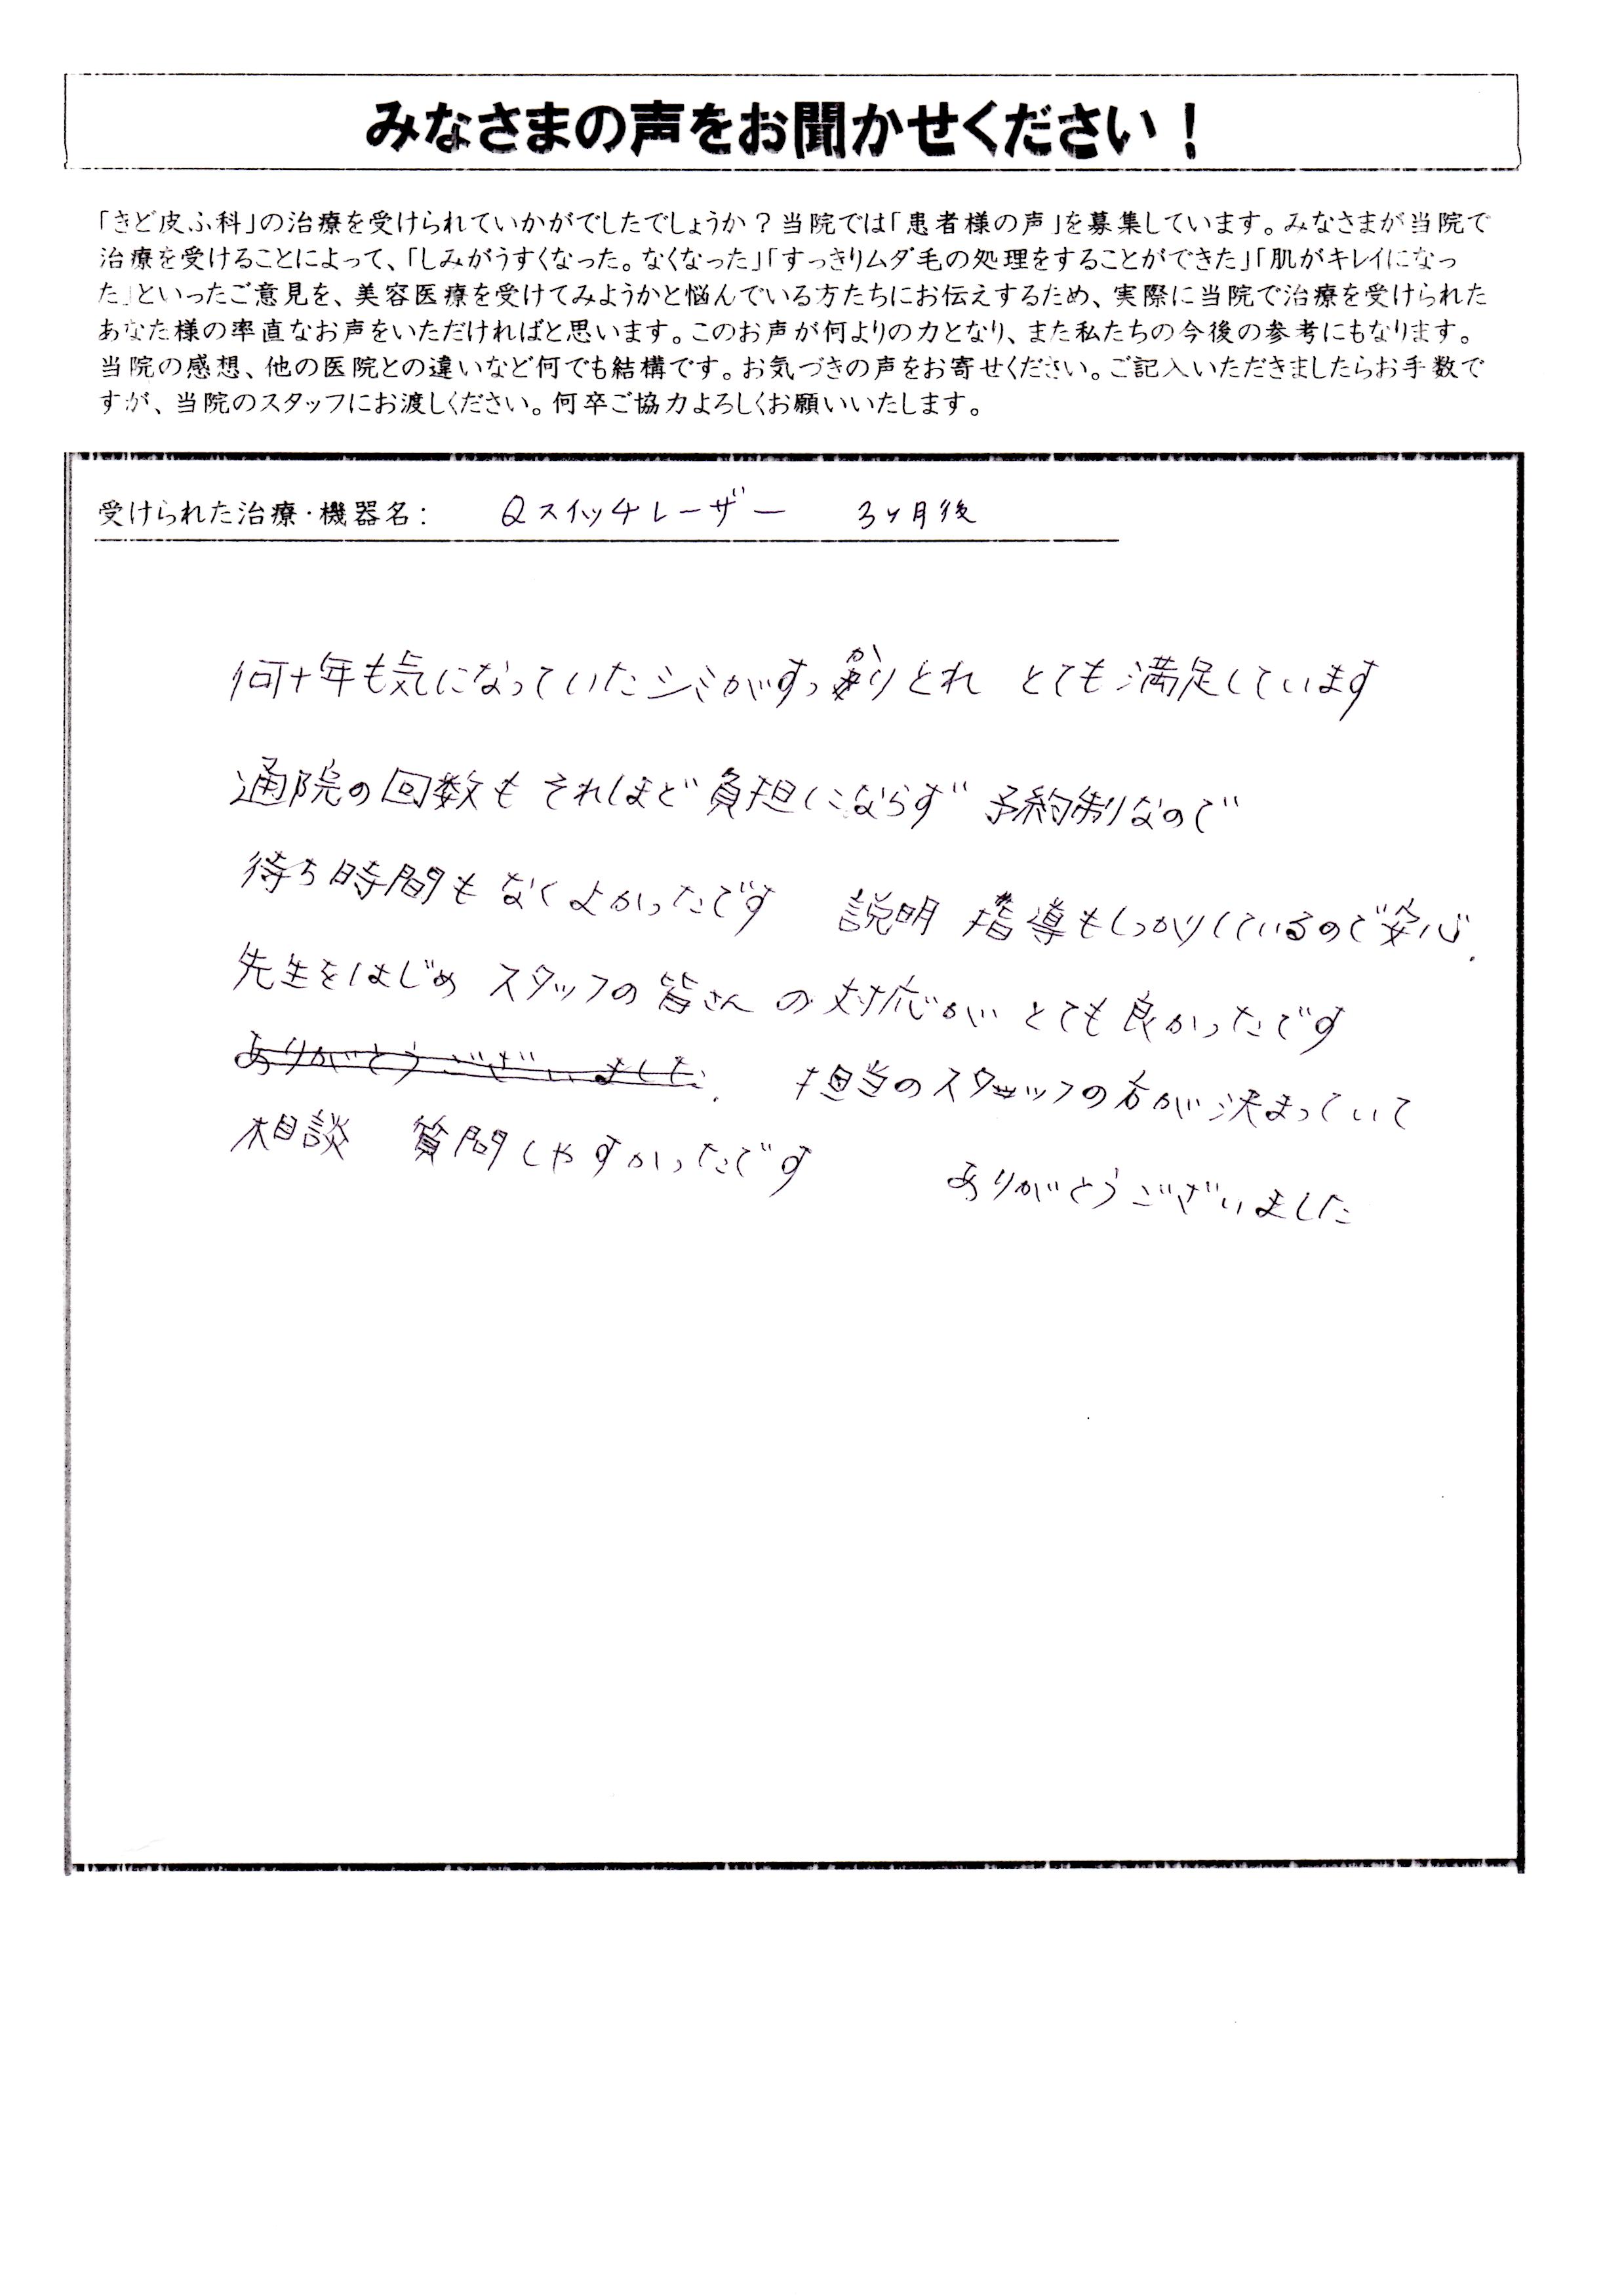 みなさまの声をお聞かせください！
「きど皮ふ科」の治療を受けられていかがでしたでしょうか？当院では「患者様の声」を募集しています。みなさまが当院で
治療を受けることによって、「しみがうすくなった。なくなった」「すっきりムダ毛の処理をすることができた」「肌がキレイになっ
た」といったご意見を、美容医療を受けてみようかと悩んでいる方たちにお伝えするため、実際に当院で治療を受けられた
あなた様の率直なお声をいただければと思います。このお声が何よりの力となり、また私たちの今後の参考にもなります。
当院の感想、他の医院との違いなど何でも結構です。お気づきの声をお寄せください。ご記入いただきましたらお手数で
すが、当院のスタッフにお渡しください。何卒ご協力よろしくお願いいたします。
受けられた治療・機器名： Qスイッチレーザー 3ヶ月後
何十年も気になっていたシミがすっかりとれ とても満足しています
通院の回数もそれほど負担にならず 予約制なので
待ち時間もなくよかったです 説明 指導もしっかりしているので安心.
先生をはじめ スタッフの皆さんの対応が とても良かったです
ありがとうございました. 担当のスタッフの方が決まっていて
相談 質問しやすかったです ありがとうございました